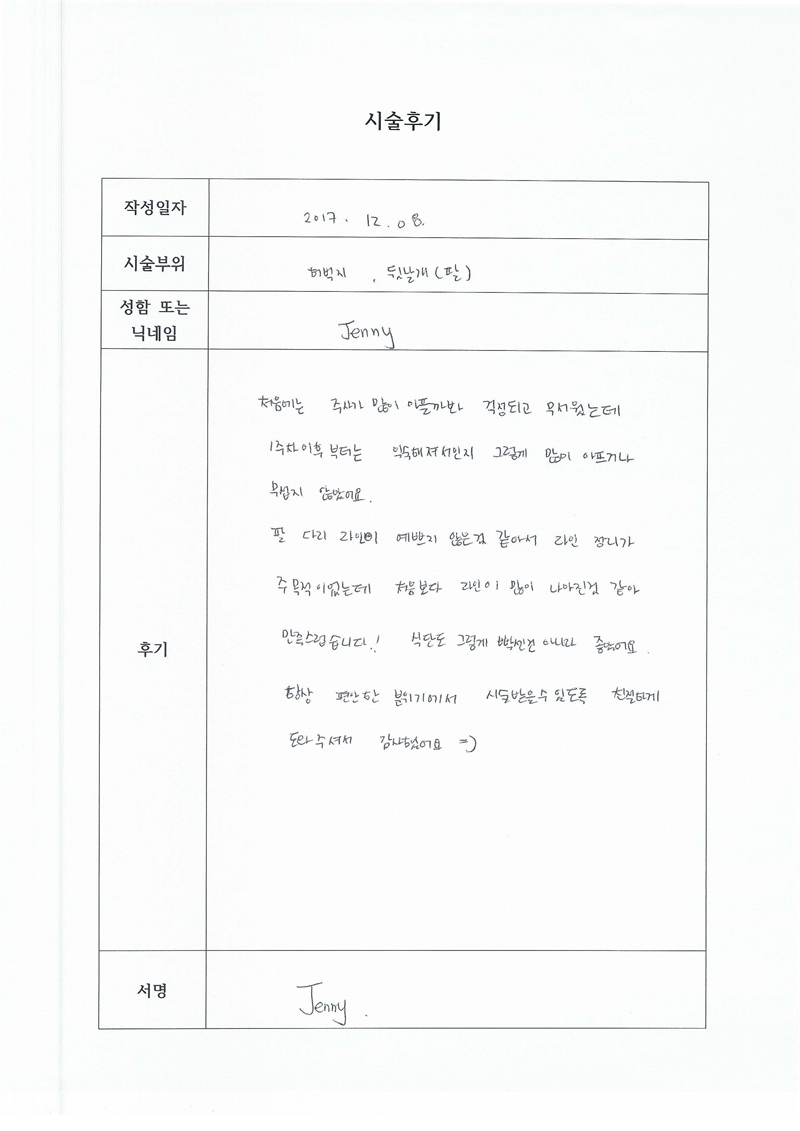 시술후기
작성일자
2017. 12. 08.
시술부위
허벅지, 뒷날개(팔)
성함 또는
닉네임
Jenny
처음에는 주사가 많이 아플까봐 걱정되고 무서웠는데
1주차 이후부터는 익숙해져서인지 그렇게 많이 아프거나
무섭지 않았어요.
팔 다리 라인이 예쁘지 않은것 같아서 라인 정리가
주 목적이었는데 처음보다 라인이 많이 나아진것 같아
만족스럽습니다! 식단도 그렇게 빡센건 아니라 좋았어요.
후기
항상 편안한 분위기에서 시술받을수 있도록 친절하게
도와주셔서 감사했어요 =)
서명
Jenny.